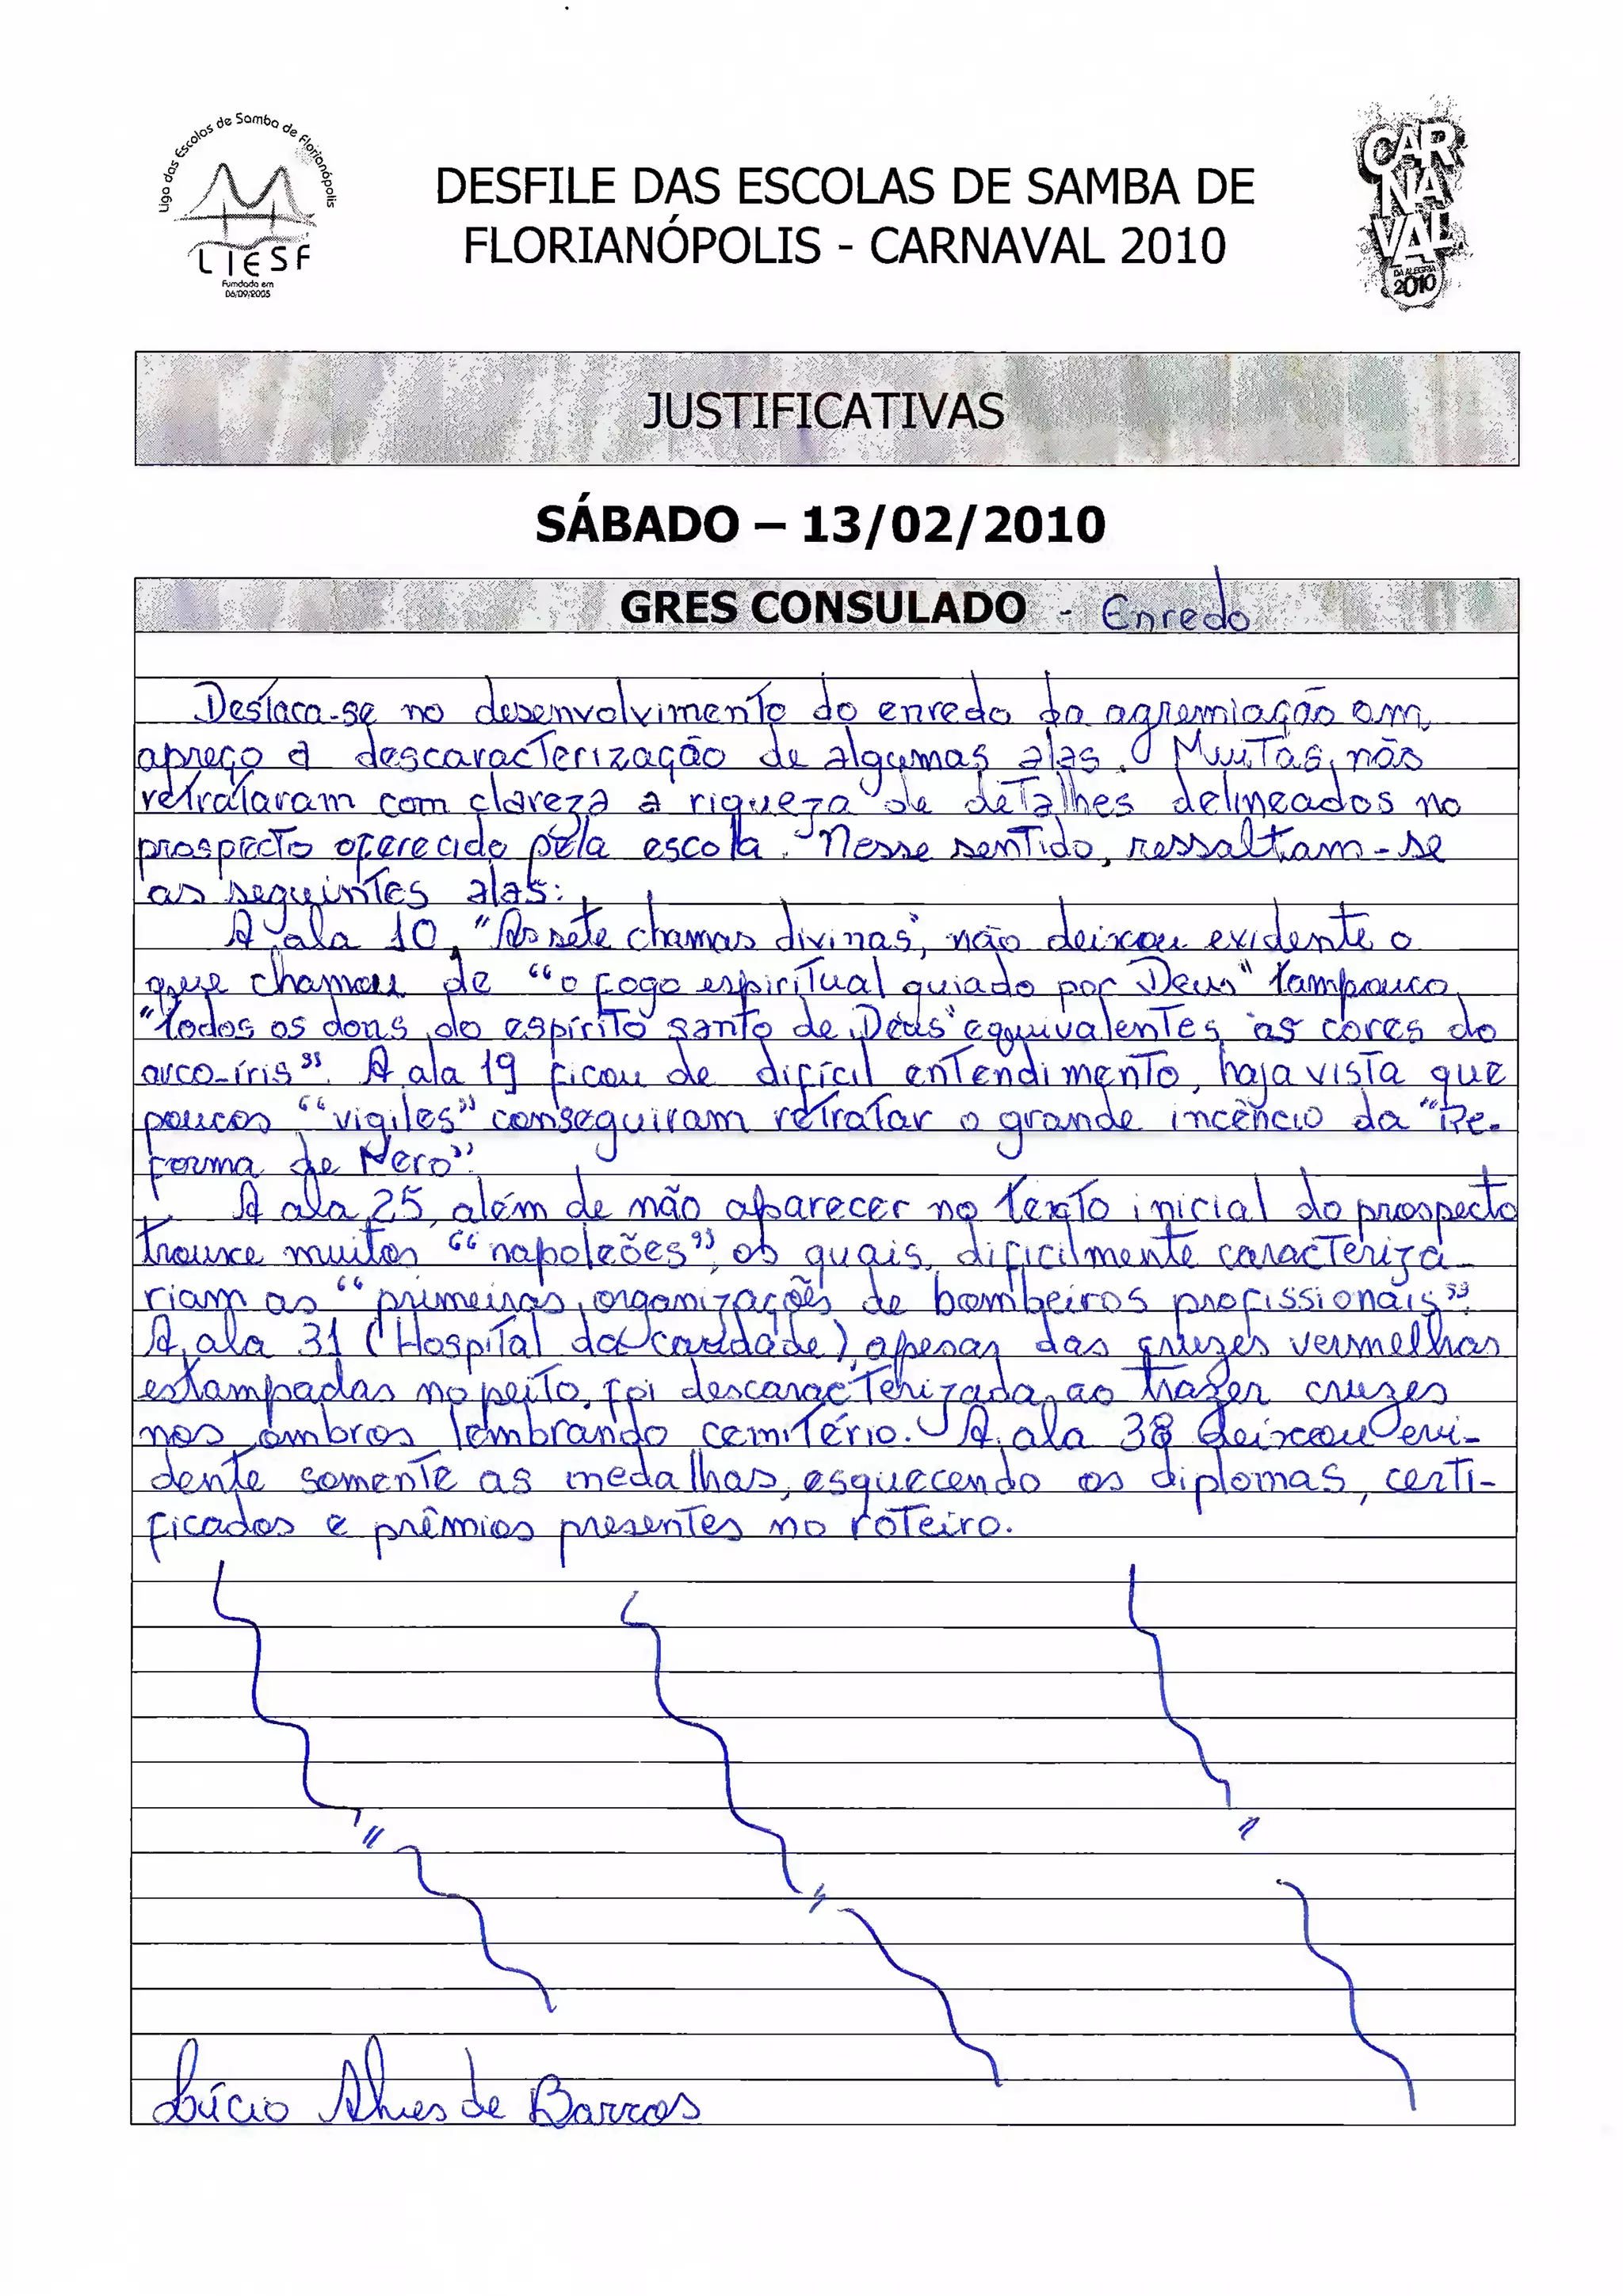 Liga das Escolas de Samba de Florianópolis
LIESF
Fundada em
06/09/2005
DESFILE DAS ESCOLAS DE SAMBA DE
FLORIANÓPOLIS - CARNAVAL 2010
CAR
NA
VAL
DA ALEGRIA
2010
JUSTIFICATIVAS
SÁBADO – 13/02/2010
GRES CONSULADO - Enredo
Destaca-se no desenvolvimento do enredo da agremiação em
apreço a descaracterização de algumas alas. Muitas, não
retrataram com clareza a riqueza de detalhes delineados no
prospecto oferecido pela escola. Nesse sentido, ressaltam-se
as seguintes alas:
A ala 10, "As sete chamas divinas", não deixou evidente o
que chamou de "o fogo espiritual guiado por Deus" tampouco
"todos os dons do espírito santo de Deus" equivalentes as cores do
arco-íris". A ala 19 ficou de difícil entendimento, haja vista que
poucos "vigiles" conseguiram retratar o grande incêncio da "Re-
forma de Nero".
A ala 25, além de não aparecer no texto inicial do prospecto
trouxe muitos "napoleões", os quais, dificilmente caracteriza-
riam as "primeiras organizações de bombeiros profissionais".
A ala 31 (Hospital da caridade), apesar das cruzes vermelhas
estampadas no peito, foi descaracterizada ao trazer cruzes
nos ombros lembrando cemitério. A ala 38 deixou evi-
dente somente as medalhas, esquecendo os diplomas, certi-
ficados e prêmios presentes no roteiro.
Lúcio Alves de Barros